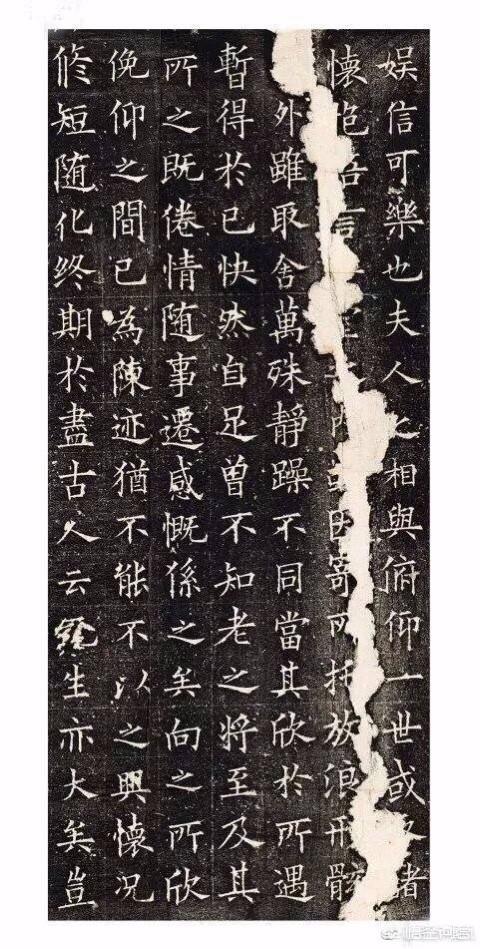 娱信可樂也夫人之相與俯仰一世或諸
懷抱悟言室内或因寄所托放浪形骸
外雖取舍萬殊静躁不同當其欣於所遇
暫得於己快然自足曾不知老之将至及其
所之既倦情随事遷感慨係之矣向之所欣
俛仰之間已為陳迹猶不能不以之興懷况
修短随化终期於盡古人云死生亦大矣豈